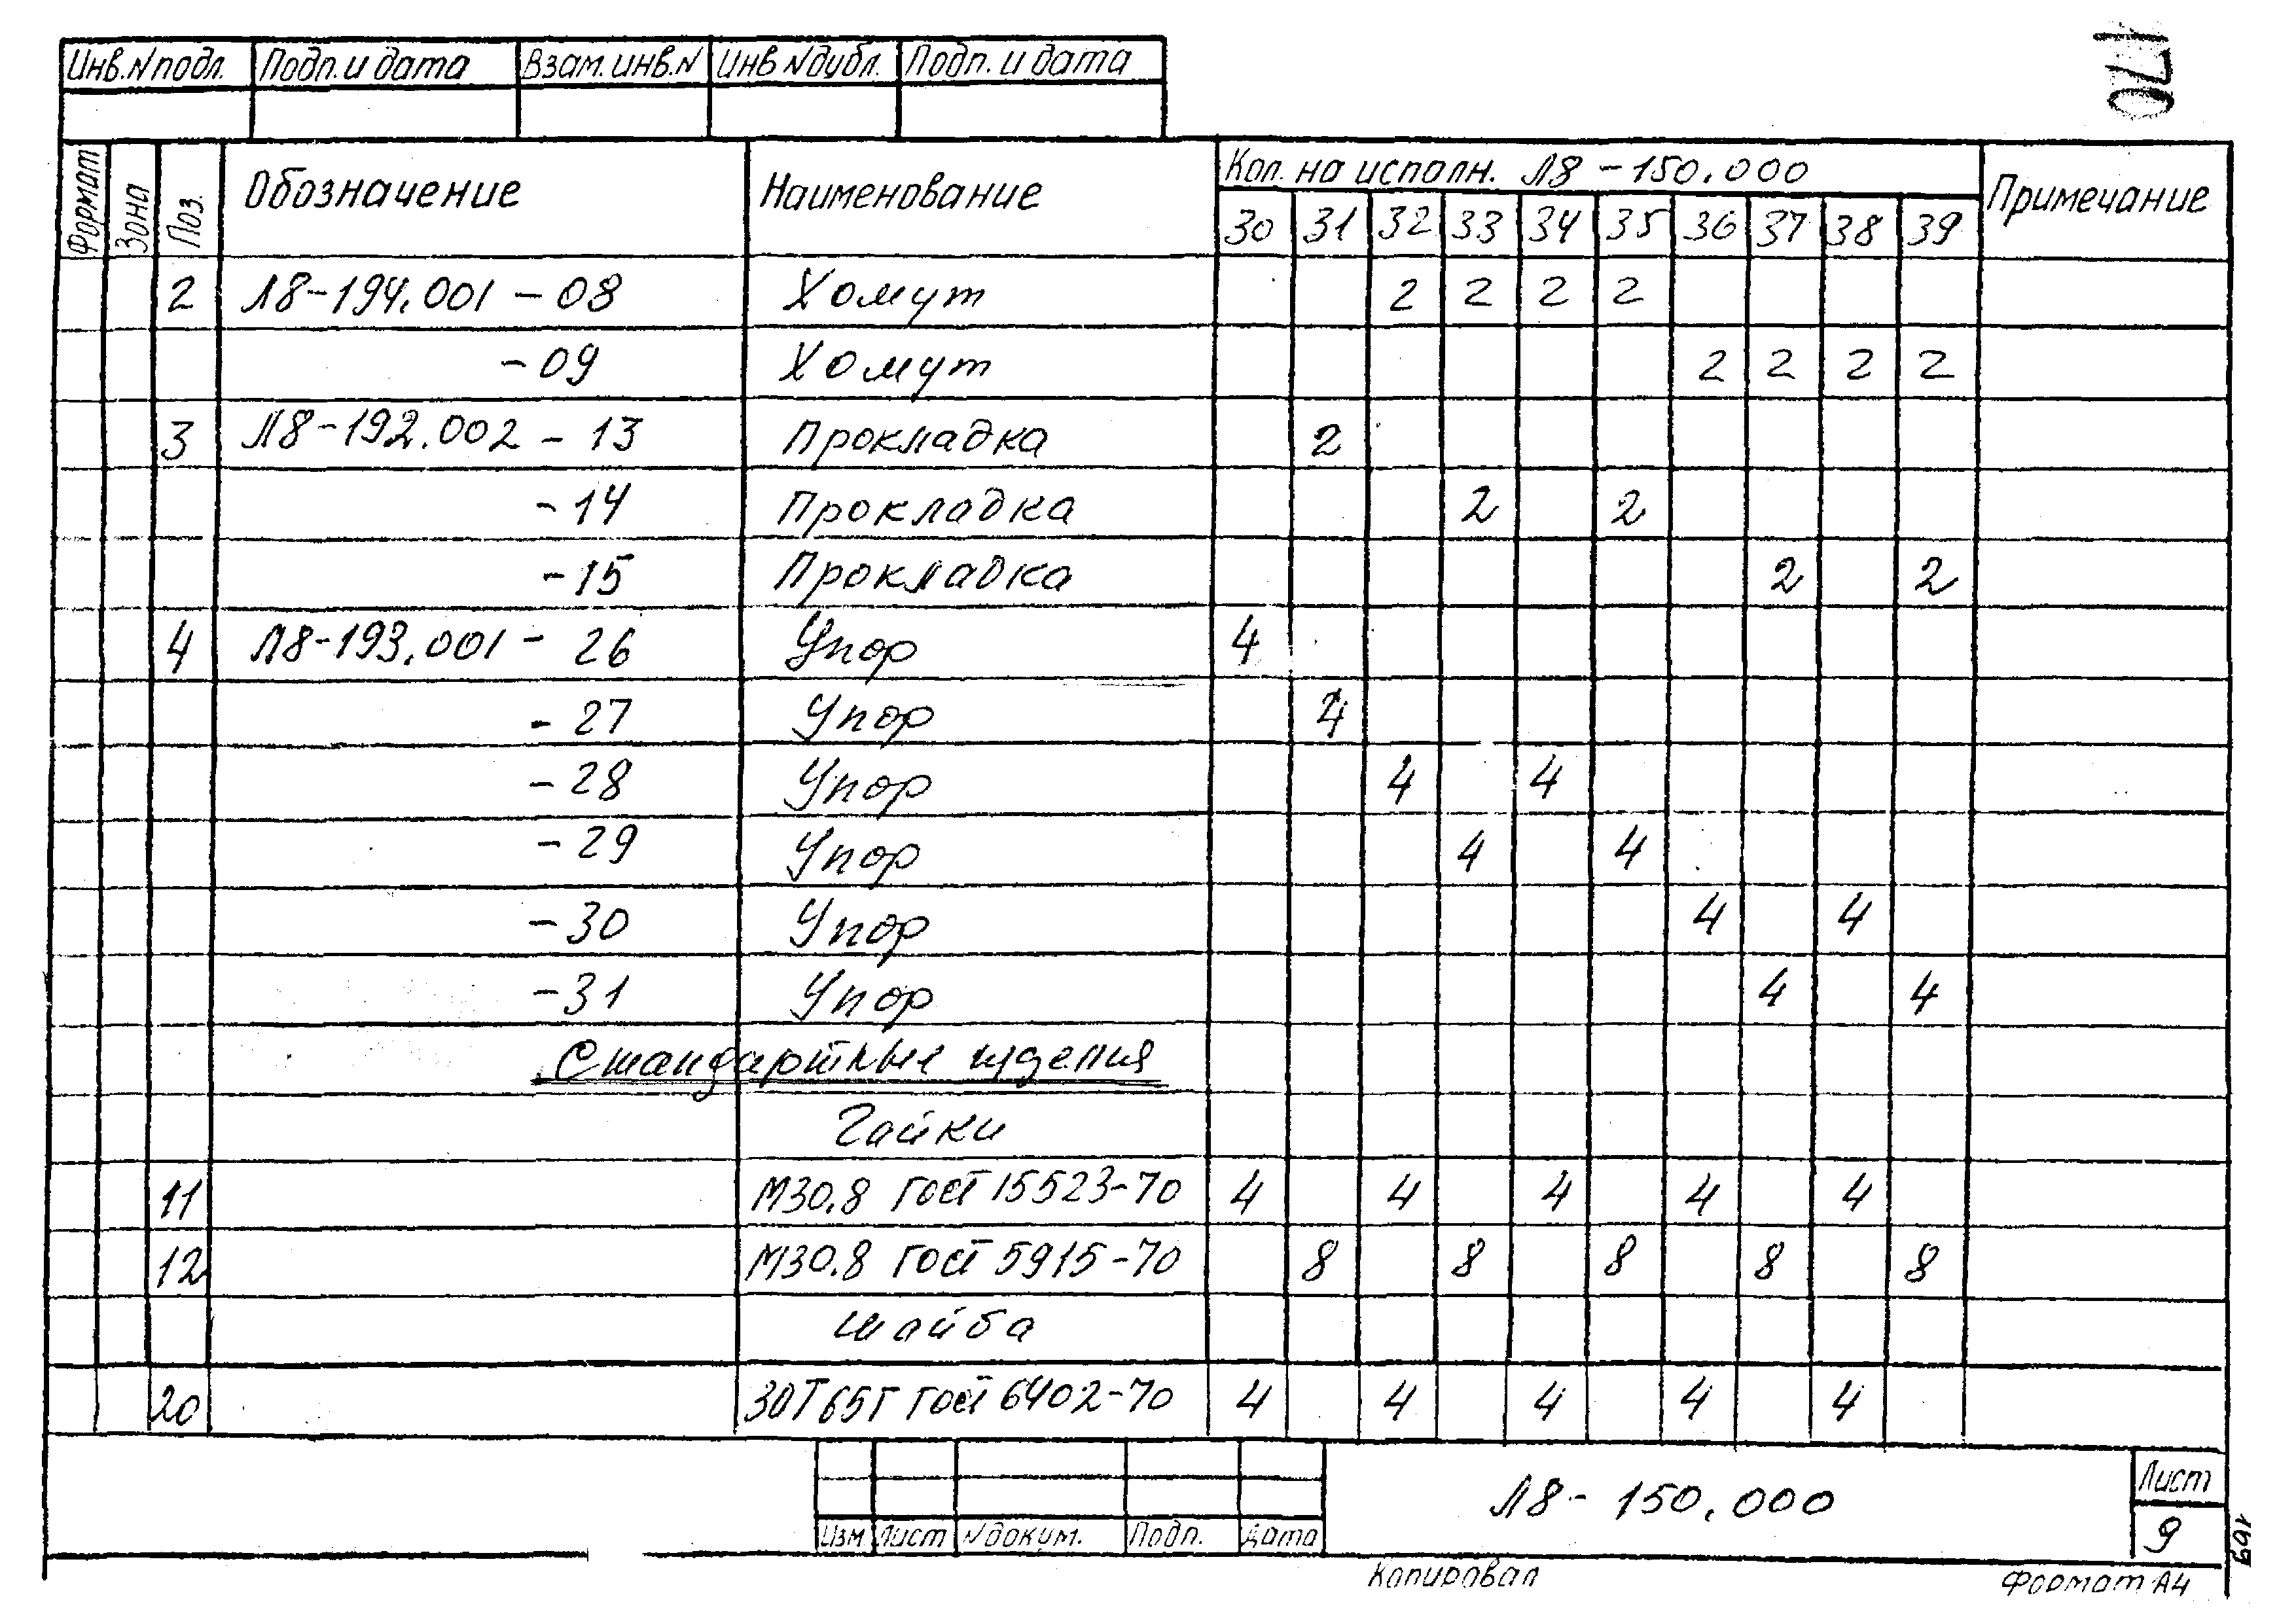 170
Инв.N подл. Подп. и дата Взам. инв. N Инв N дубл. Подп. и дата
Формат Зона Поз. Обозначение Наименование Кол. на исполн. Л8-150.000 Примечание
30 31 32 33 34 35 36 37 38 39
2 Л8-194.001 - 08 Хомут 2 2 2 2
-09 Хомут 2 2 2 2
3 Л8-192.002 - 13 Прокладка 2
-14 Прокладка 2 2
-15 Прокладка 2 2
4 Л8-193.001 - 26 Упор 4
- 27 Упор 4
- 28 Упор 4 4
- 29 Упор 4 4
- 30 Упор 4 4
- 31 Упор 4 4
Стандартные изделия
Гайки
11 М30.8 ГОСТ 15523-70 4 4 4 4 4
12 М30.8 ГОСТ 5915-70 8 8 8 8 8
шайба
20 30Т 65Г ГОСТ 6402-70 4 4 4 4 4
Л8-150.000
Лист
9
Изм Лист N докум. Подп. Дата
169
Копировал
Формат А4